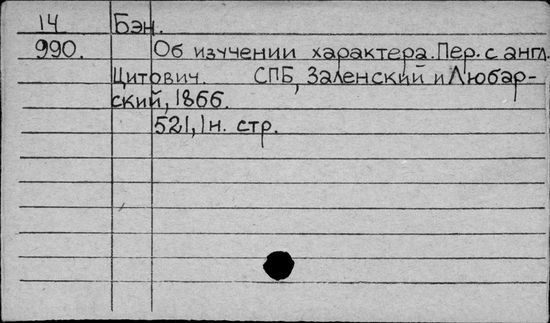 14 Бэн.
990. Об изучении характера. Пер. с англ.
Цитович. СПБ, Заленский и Любар-
ский, 1866.
521, 1 н. стр.